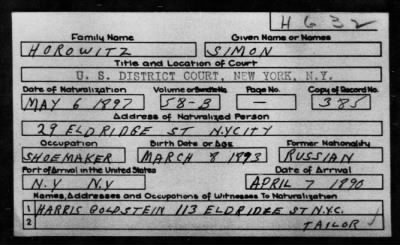 H 632
Family Name Given Name or Names
HOROWITZ SIMON
Title and Location of Court
U. S. DISTRICT COURT, NEW YORK, N.Y.
Date of Naturalization Volume or Bundle No. Page No. Copy of Record No.
MAY 6 1897 58-B — 385
Address of Naturalized Person
29 ELDRIDGE ST N.Y.CITY
Occupation Birth Date or Age Former Nationality
SHOEMAKER MARCH 8 1893 RUSSIAN
Port of Arrival in the United States Date of Arrival
N.Y N.Y APRIL 7 1890
Names, Addresses and Occupations of Witnesses To Naturalization
1 HARRIS GOLDSTEIN 113 ELDRIDGE ST N.Y.C.
2 TAILOR